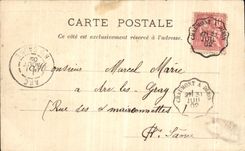 CARTE POSTALE
Ce côté est exclusivement réservé à l'adresse.
Monsieur Marcel Marie
à Arc-les-Gray
(Rue des 2 maisonnettes)
Hte Saône
CHAUMONT À GRAY
02